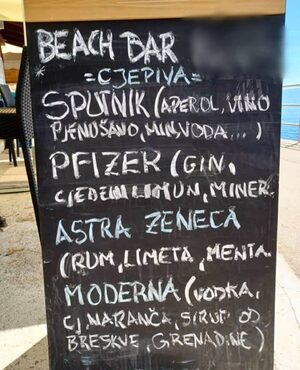 BEACH BAR
=CJEPIVA=
SPUTNIK (APEROL, VINO
PJENUŠAVO, MIN.VODA...)
PFIZER (GIN,
CIJEDENI LIMUN, MINER.
ASTRA ZENECA
(RUM, LIMETA, MENTA
MODERNA (VODKA,
CJ. NARANČA, SIRUP OD
BRESKVE, GRENADINE)